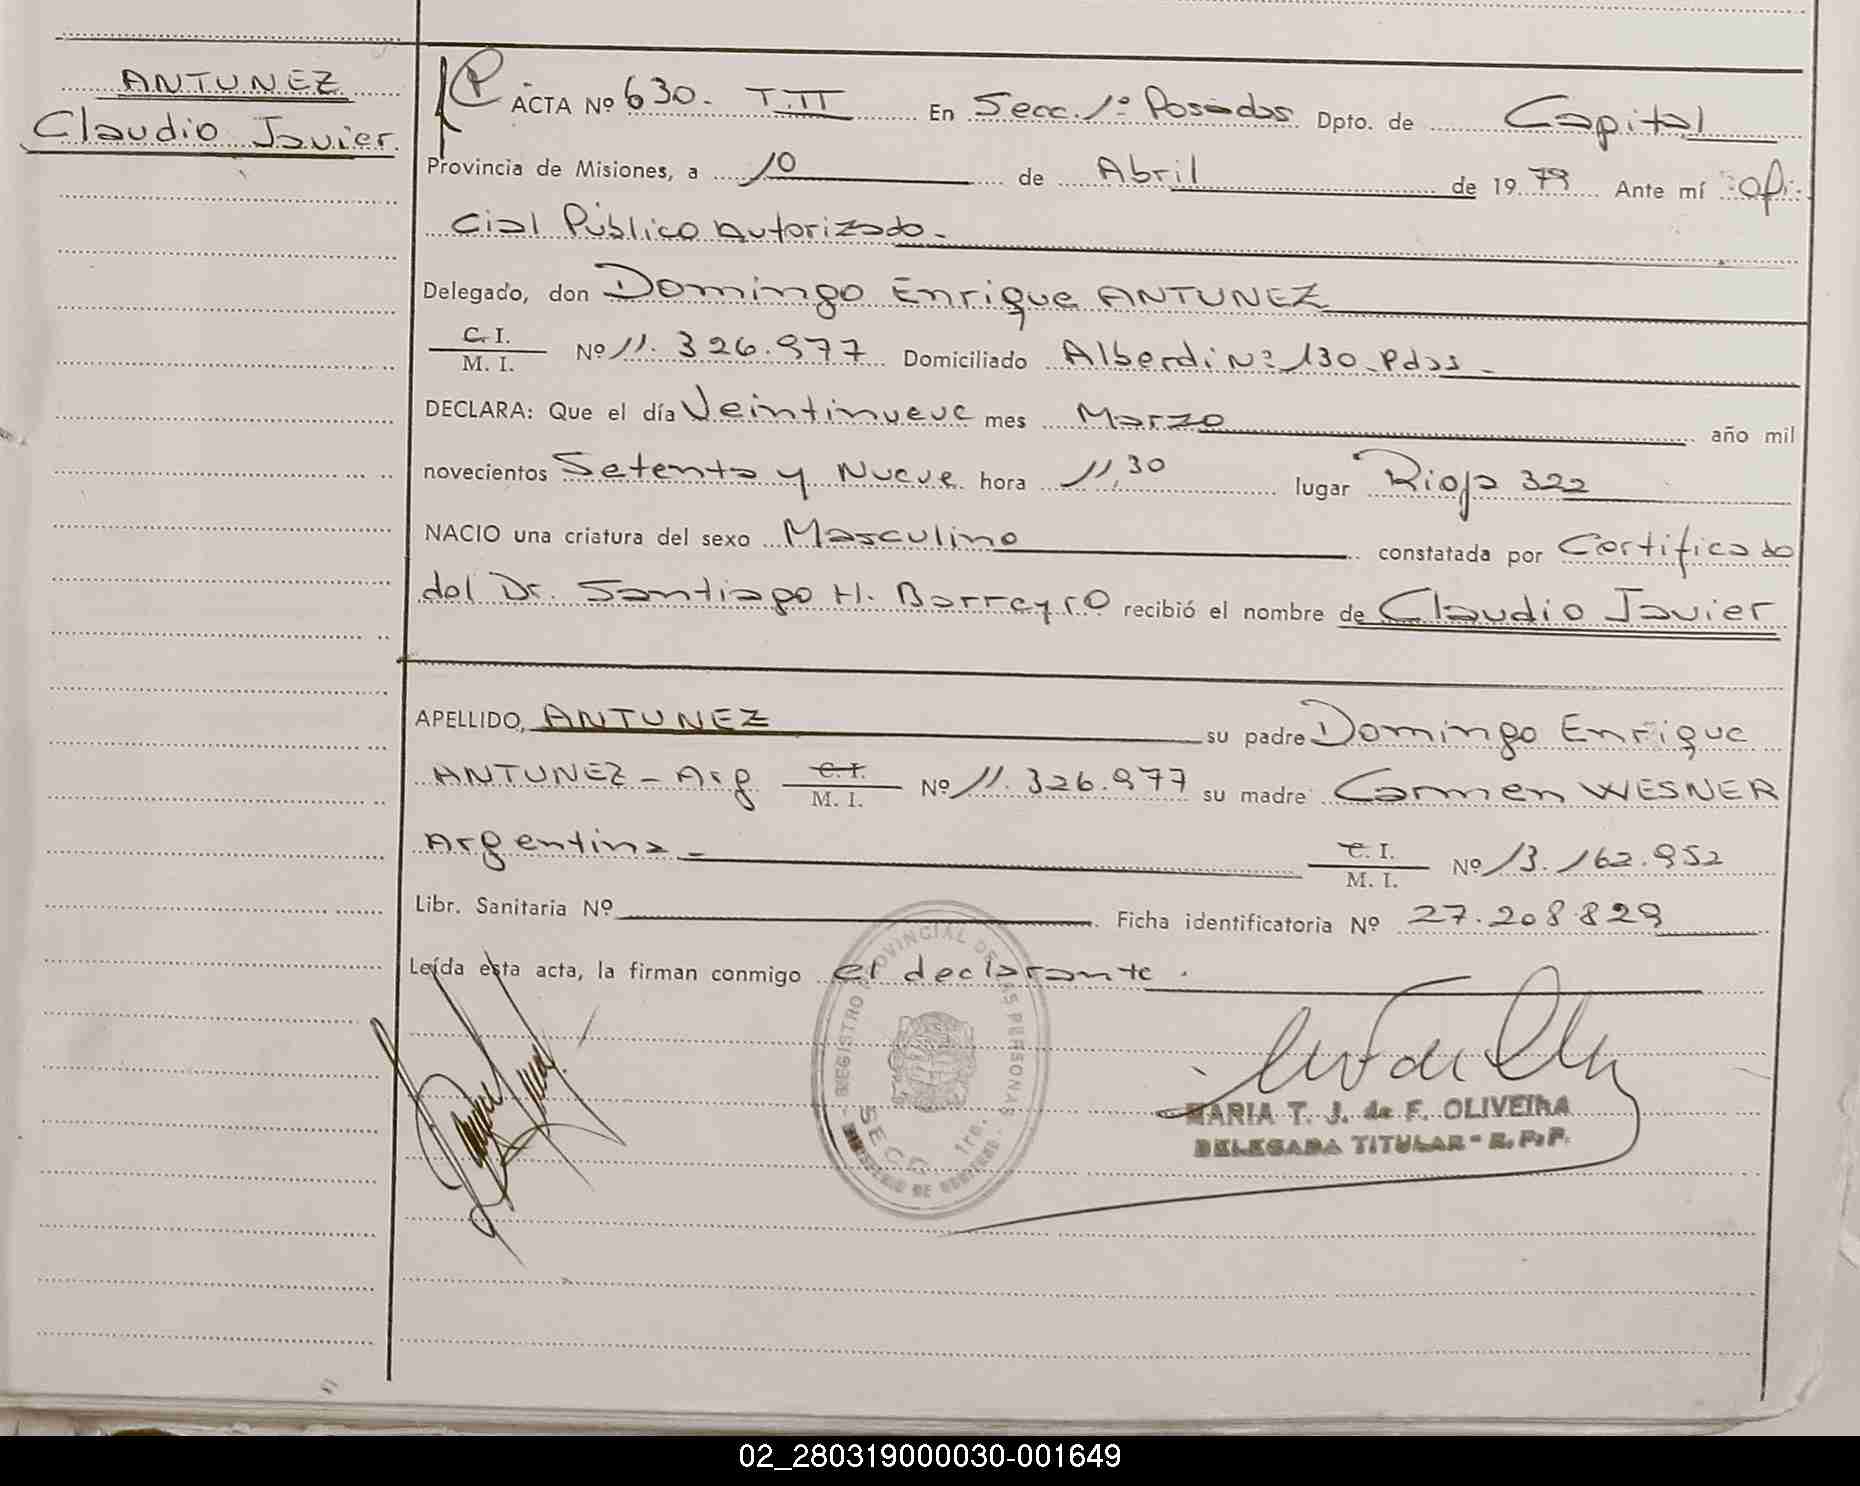 ANTUNEZ
Claudio Javier.
ACTA Nº 630. T.II En Secc. 1º Posadas Dpto. de Capital
Provincia de Misiones, a 10 de Abril de 1979 Ante mí ofi-
cial Público Autorizado.
Delegado, don Domingo Enrique ANTUNEZ
C. I.
M. I. Nº 11.326.977 Domiciliado Alberdi Nº 130. Pdas.
DECLARA: Que el día Veintinueve mes Marzo año mil
novecientos Setenta y Nueve hora 11,30 lugar Rioja 322
NACIO una criatura del sexo Masculino constatada por Certificado
del Dr. Santiago H. Barreyro recibió el nombre de Claudio Javier
APELLIDO, ANTUNEZ su padre Domingo Enrique
ANTUNEZ - Arg C. I. M. I. Nº 11.326.977 su madre Carmen WESNER
Argentina - C. I. M. I. Nº 13.162.952
Libr. Sanitaria Nº Ficha identificatoria Nº 27.208.829
Leída esta acta, la firman conmigo el declarante.
REGISTRO PROVINCIAL DE LAS PERSONAS
SECC. 1ra.
MINISTERIO DE GOBIERNO
MARIA T. J. de F. OLIVEIRA
DELEGADA TITULAR - R. P. P.
02_280319000030-001649